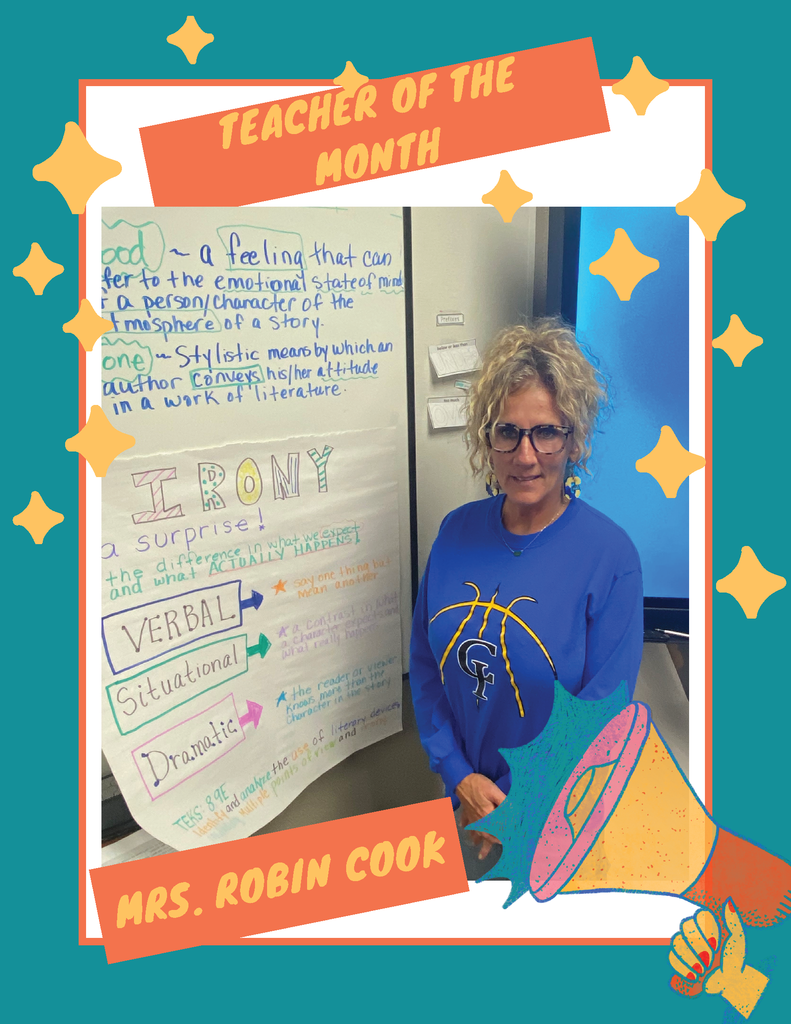 TEACHER OF THE
MONTH
ood ~ a feeling that can
fer to the emotional state of mind
r a person/character of the
tmosphere of a story.
one ~ Stylistic means by which an
author conveys his/her attitude
in a work of literature.
IRONY
a surprise!
the difference in what we expect
and what ACTUALLY HAPPENS!
VERBAL
say one thing but
mean another
Situational
a contrast in what
a character expects and
what really happens
Dramatic
the reader or viewer
knows more than the
character in the story
TEKS: 8.9E
Identify and analyze the use of literary devices
multiple points of view and irony
CF
MRS. ROBIN COOK